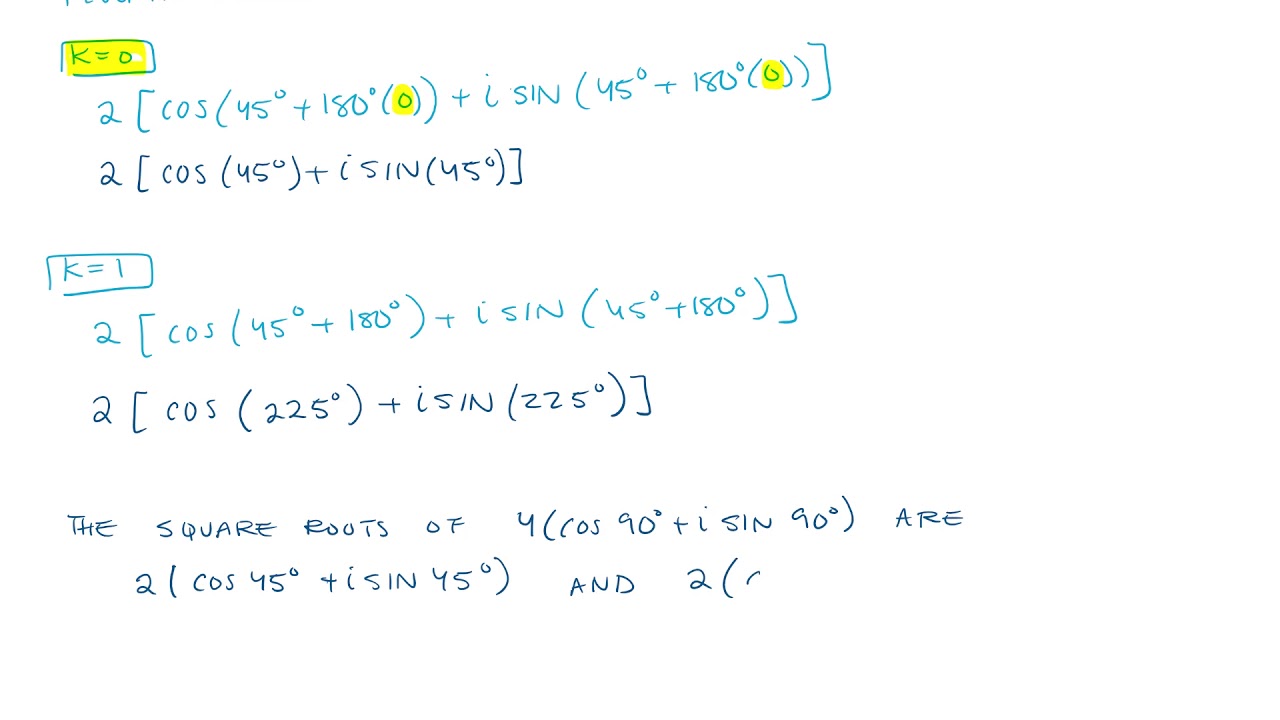 K=0
2[cos(45°+180°(0))+i SIN(45°+180°(0))]
2[cos(45°)+i SIN(45°)]
K=1
2[cos(45°+180°)+i SIN(45°+180°)]
2[cos(225°)+i SIN(225°)]
THE SQUARE ROOTS OF 4(cos 90°+i SIN 90°) ARE
2(cos 45°+i SIN 45°) AND 2(